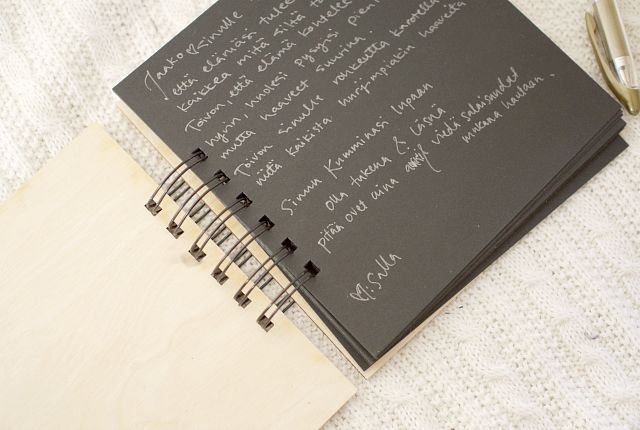 Jaako ♡ sinulle
että elämäsi tulee
kaikkea mitä siltä to
Toivon, että elämä kohtelee
hyvin, huolesi pysyisi pien
mutta haaveet suurina.
Toivon sinulle rohkeutta kurotella
niitä kaikista hurjimpiakin haaveita
Sinun Kumminasi lupaan
olla tukena & läsnä
pitää ovet aina vielä salaisuudet
mukana hautaan.
♡: Salla